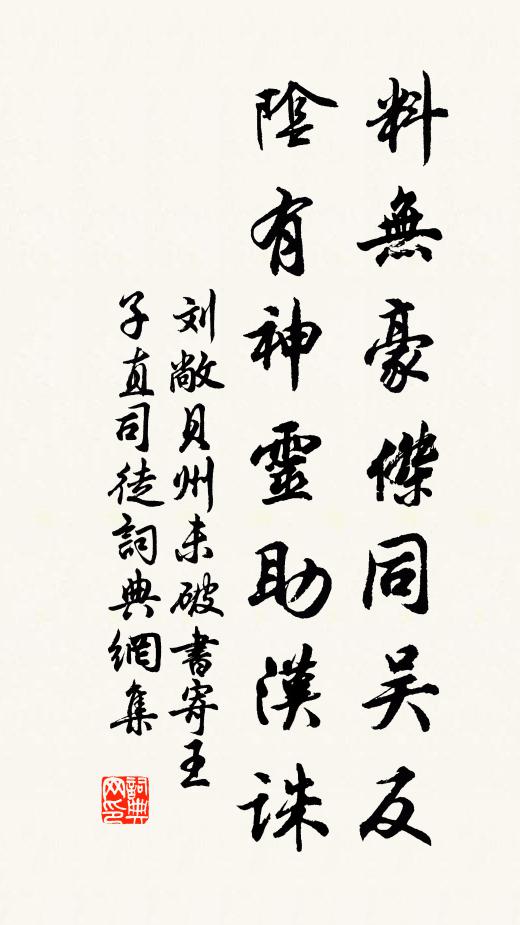 料無豪傑同吴反
陰有神靈助漢誅
刘敞貝州未破書寄王
子直司徒詞典網集
詞典網印